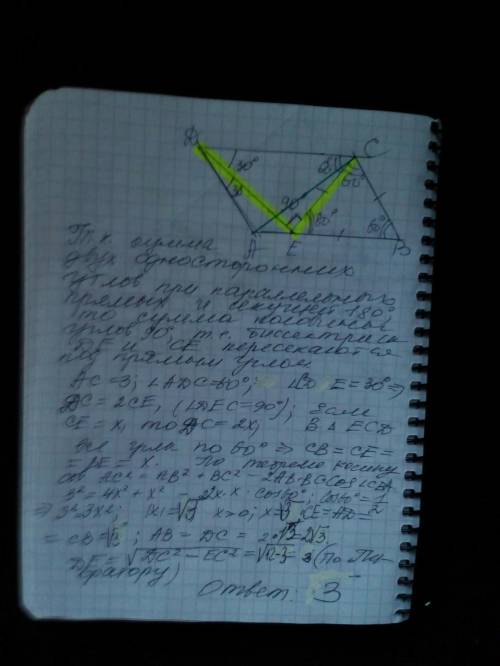 D
C
30°
30
60°
60°
90°
60°
60°
A
E
B
Т.к. сумма
двух односторонних
углов при параллельных
прямых и секущей 180°
то сумма половины
углов 90°, т.е. биссектрисы
DE и CE пересекаются
под прямым углом
AC=3; ∠ADC=60°; E=30° ⇒
DC = 2CE, (∠DEC=90°); Если
CE = x, то DC = 2x, В Δ ECB
все углы по 60° ⇒ CB = CE =
= BE = x. По теореме косину
сов AC² = AB² + BC² - 2AB·BC cos∠CBA
3² = 4x² + x² - 2x·x·cos60°; cos60° = 1/2
⇒ 3² = 3x²; |x| = √3 x>0; x=√3 CE=AD=
= CB = √3; AB = DC = 2·√3 = 2√3
DE = √DC² - EC² = √12-3 = 3 (По Пи
фагору)
Ответ: 3